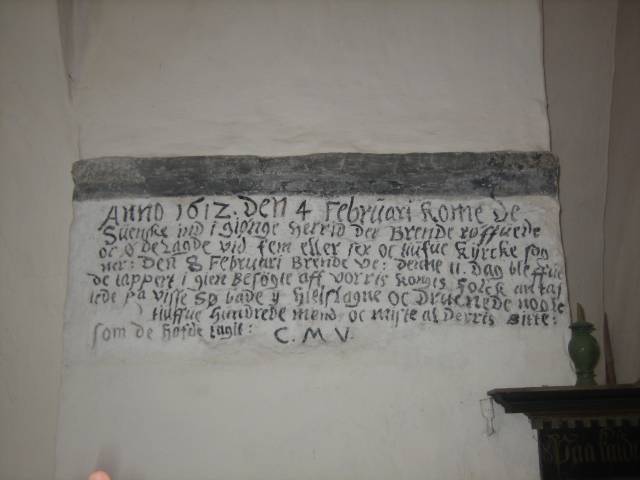 ANNO 1612. Den 4 Februari Kome De
Suenske ind i giønge Herrid der Brende røffwede
oc Ødelagde vid fem eller sex oc tiufue Kyrcke sog
ner: Den 8 Februari Brende Ve: denne 11. Dag bleffue
de tappert i giere Besøgte aff vorris Kongis Folck antaj
lede på visse Sø både y hielslagne oc Druenede nogle
tiuffue Hundrede mend oc miste al Derris Bitte:
som de hafde tagit: C. M V.